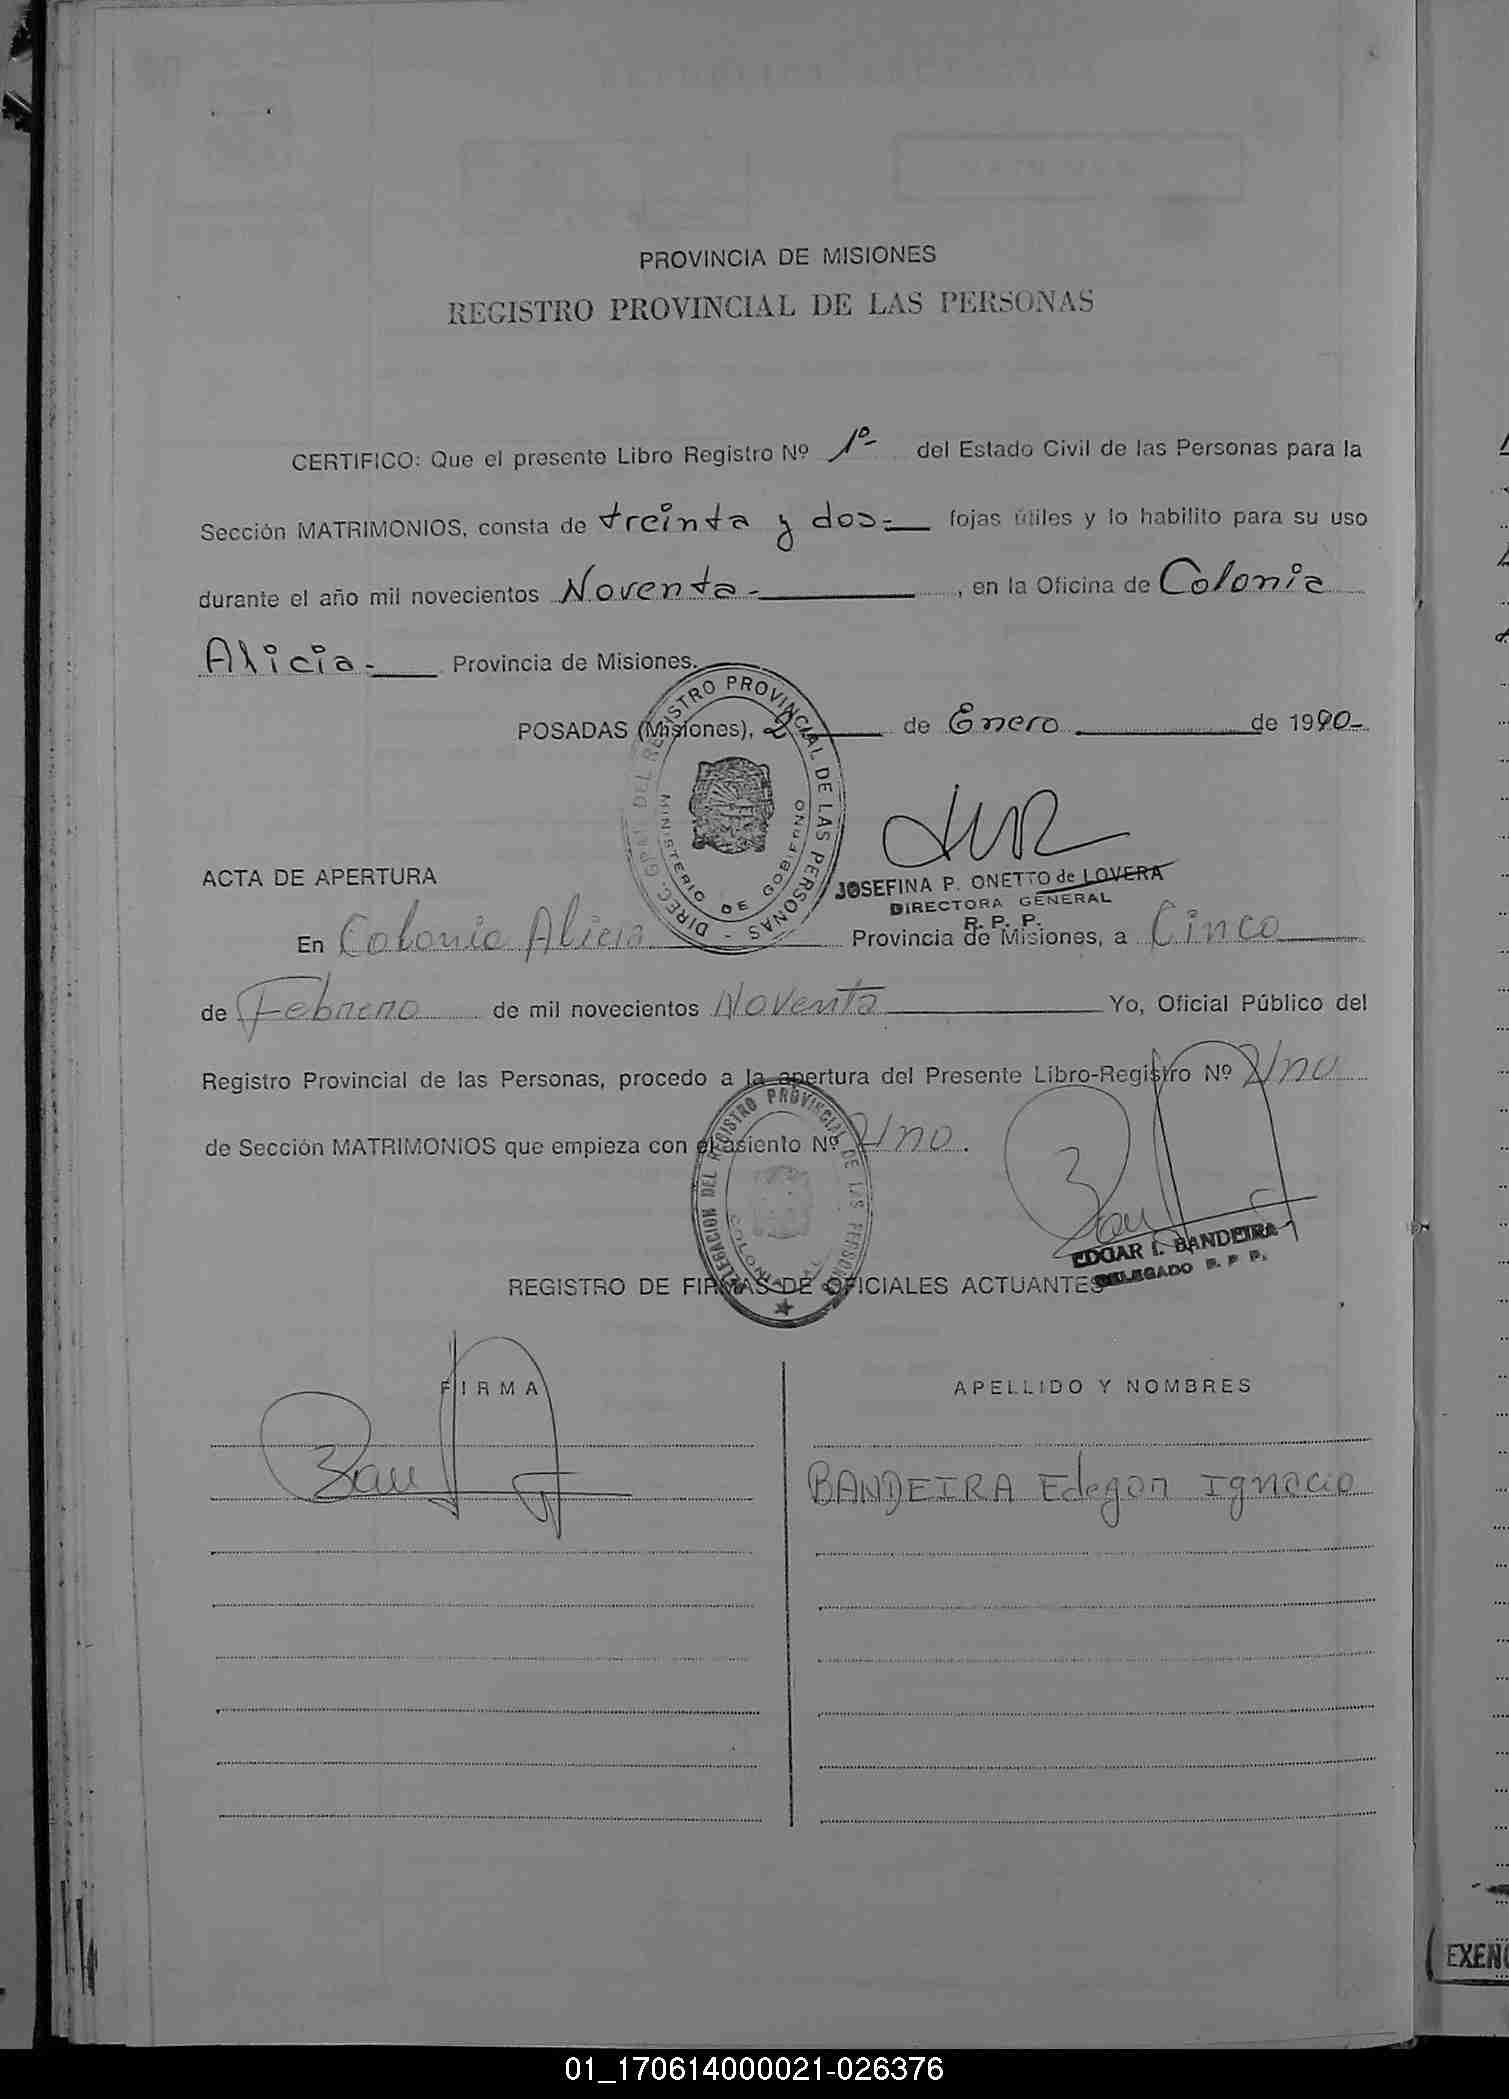 PROVINCIA DE MISIONES
REGISTRO PROVINCIAL DE LAS PERSONAS
CERTIFICO: Que el presente Libro Registro Nº 1º- del Estado Civil de las Personas para la
Sección MATRIMONIOS, consta de treinta y dos- fojas útiles y lo habilito para su uso
durante el año mil novecientos Noventa- , en la Oficina de Colonia
Alicia- Provincia de Misiones.
POSADAS (Misiones), 2 de Enero de 1990-
DIREC. GRAL. DEL REGISTRO PROVINCIAL DE LAS PERSONAS -
MINISTERIO DE GOBIERNO
JOSEFINA P. ONETTO de LOVERA
DIRECTORA GENERAL
R. P. P.
ACTA DE APERTURA
En Colonia Alicia Provincia de Misiones, a Cinco
de Febrero de mil novecientos Noventa Yo, Oficial Público del
Registro Provincial de las Personas, procedo a la apertura del Presente Libro-Registro Nº Uno
de Sección MATRIMONIOS que empieza con el asiento Nº Uno.
DELEGACION DEL REGISTRO PROVINCIAL DE LAS PERSONAS
COLONIA
EDGAR I. BANDEIRA
DELEGADO R. P. P.
REGISTRO DE FIRMAS DE OFICIALES ACTUANTES
FIRMA APELLIDO Y NOMBRES
BANDEIRA Edegar Ignacio
EXEN
01_170614000021-026376